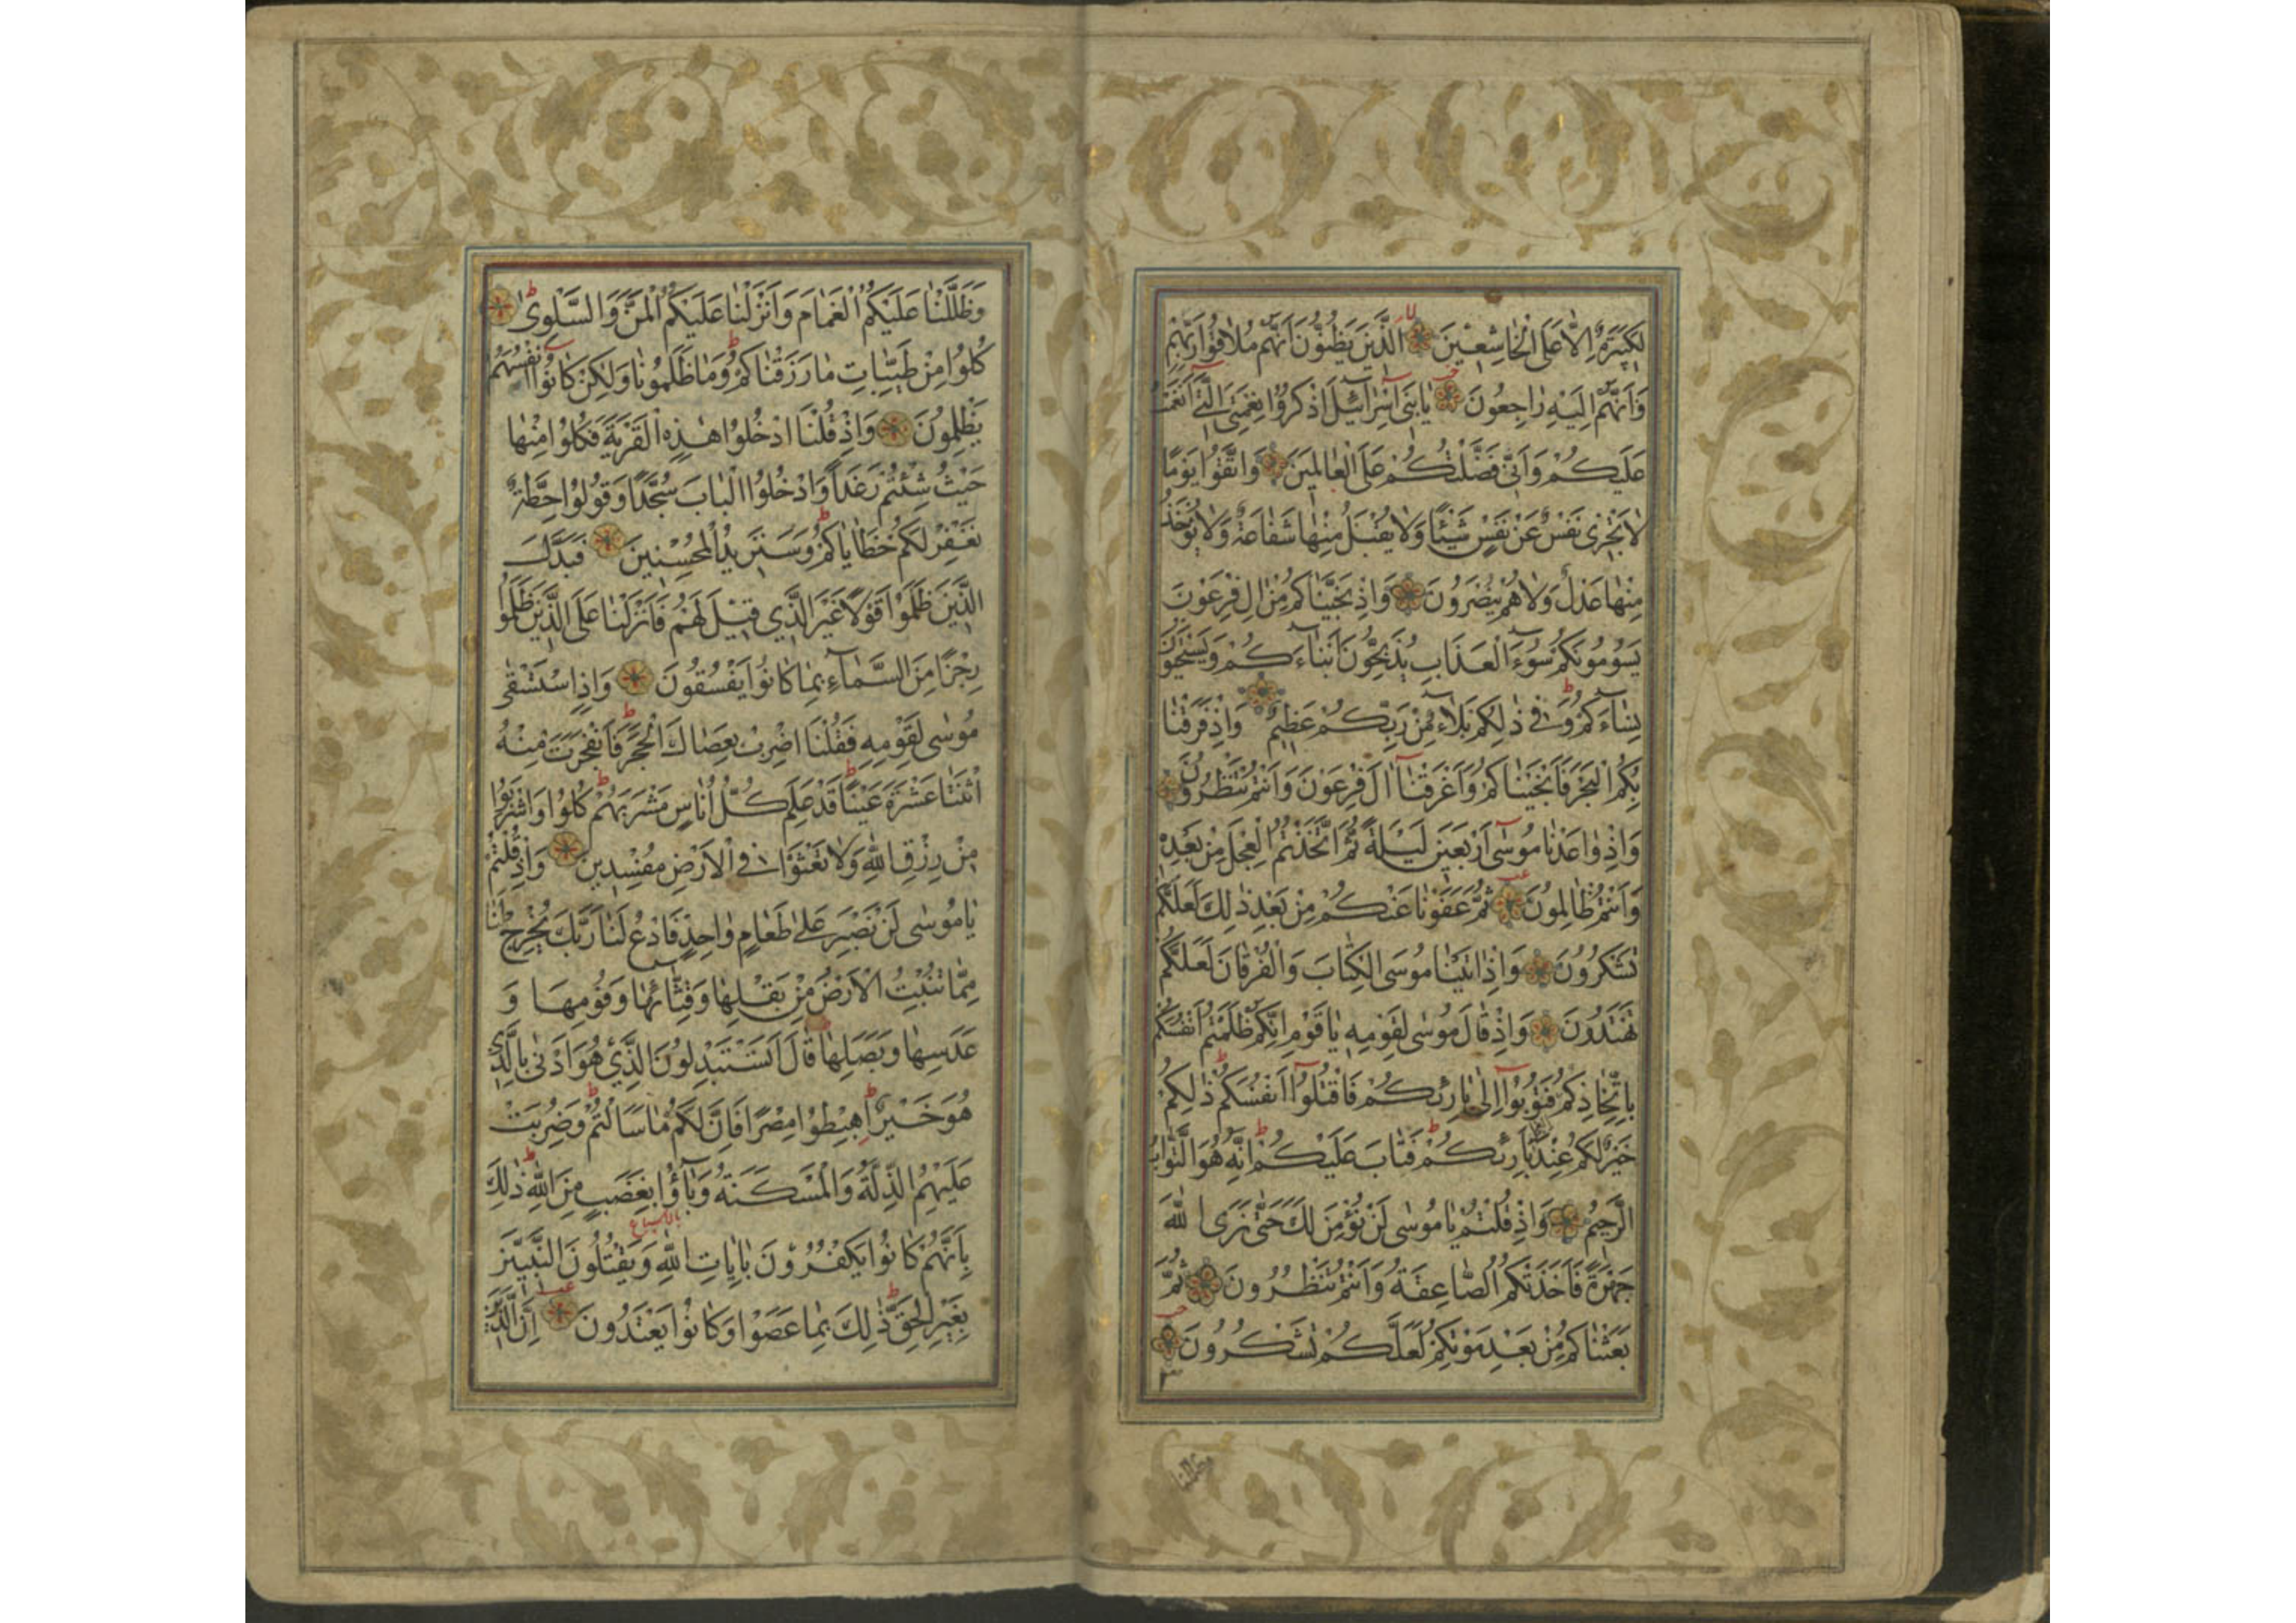 لَكَبِيرَةٌ اِلَّا عَلَى الْخَاشِعِينَ الَّذِينَ يَظُنُّونَ اَنَّهُمْ مُلَاقُوا رَبِّهِمْ
وَاَنَّهُمْ اِلَيْهِ رَاجِعُونَ يَا بَنِى اِسْرَآئِلَ اذْكُرُوا نِعْمَتِىَ الَّتِى اَنْعَمْتُ
عَلَيْكُمْ وَاَنِّى فَضَّلْتُكُمْ عَلَى الْعَالَمِينَ وَاتَّقُوا يَوْمًا
لَا تَجْزِى نَفْسٌ عَنْ نَفْسٍ شَيْئًا وَلَا يُقْبَلُ مِنْهَا شَفَاعَةٌ وَلَا يُؤْخَذُ
مِنْهَا عَدْلٌ وَلَا هُمْ يُنْصَرُونَ وَاِذْ نَجَّيْنَاكُمْ مِنْ اٰلِ فِرْعَوْنَ
يَسُومُونَكُمْ سُوٓءَ الْعَذَابِ يُذَبِّحُونَ اَبْنَآءَكُمْ وَيَسْتَحْيُونَ
نِسَآءَكُمْ وَفِى ذٰلِكُمْ بَلَآءٌ مِنْ رَبِّكُمْ عَظِيمٌ وَاِذْ فَرَقْنَا
بِكُمُ الْبَحْرَ فَاَنْجَيْنَاكُمْ وَاَغْرَقْنَآ اٰلَ فِرْعَوْنَ وَاَنْتُمْ تَنْظُرُونَ
وَاِذْ وَاعَدْنَا مُوسٰٓى اَرْبَعِينَ لَيْلَةً ثُمَّ اتَّخَذْتُمُ الْعِجْلَ مِنْ بَعْدِهٖ
وَاَنْتُمْ ظَالِمُونَ ثُمَّ عَفَوْنَا عَنْكُمْ مِنْ بَعْدِ ذٰلِكَ لَعَلَّكُمْ
تَشْكُرُونَ وَاِذْ اٰتَيْنَا مُوسَى الْكِتَابَ وَالْفُرْقَانَ لَعَلَّكُمْ
تَهْتَدُونَ وَاِذْ قَالَ مُوسٰى لِقَوْمِهٖ يَا قَوْمِ اِنَّكُمْ ظَلَمْتُمْ اَنْفُسَكُمْ
بِاتِّخَاذِكُمُ فَتُوبُوٓا اِلٰى بَارِئِكُمْ فَاقْتُلُوٓا اَنْفُسَكُمْ ذٰلِكُمْ
خَيْرٌ لَكُمْ عِنْدَ بَارِئِكُمْ فَتَابَ عَلَيْكُمْ اِنَّهُ هُوَ التَّوَّابُ
الرَّحِيمُ وَاِذْ قُلْتُمْ يَا مُوسٰى لَنْ نُؤْمِنَ لَكَ حَتّٰى نَرَى اللّٰهَ
جَهْرَةً فَاَخَذَتْكُمُ الصَّاعِقَةُ وَاَنْتُمْ تَنْظُرُونَ ثُمَّ
بَعَثْنَاكُمْ مِنْ بَعْدِ مَوْتِكُمْ لَعَلَّكُمْ تَشْكُرُونَ
٣
وظللنا
وَظَلَّلْنَا عَلَيْكُمُ الْغَمَامَ وَاَنْزَلْنَا عَلَيْكُمُ الْمَنَّ وَالسَّلْوٰى
كُلُوا مِنْ طَيِّبَاتِ مَا رَزَقْنَاكُمْ وَمَا ظَلَمُونَا وَلٰكِنْ كَانُوٓا اَنْفُسَهُمْ
يَظْلِمُونَ وَاِذْ قُلْنَا ادْخُلُوا هٰذِهِ الْقَرْيَةَ فَكُلُوا مِنْهَا
حَيْثُ شِئْتُمْ رَغَدًا وَادْخُلُوا الْبَابَ سُجَّدًا وَقُولُوا حِطَّةٌ
نَغْفِرْ لَكُمْ خَطَايَاكُمْ وَسَنَزِيدُ الْمُحْسِنِينَ فَبَدَّلَ
الَّذِينَ ظَلَمُوا قَوْلًا غَيْرَ الَّذِي قِيلَ لَهُمْ فَاَنْزَلْنَا عَلَى الَّذِينَ ظَلَمُوا
رِجْزًا مِنَ السَّمَآءِ بِمَا كَانُوا يَفْسُقُونَ وَاِذِ اسْتَسْقٰى
مُوسٰى لِقَوْمِهِ فَقُلْنَا اضْرِبْ بِعَصَاكَ الْحَجَرَ فَانْفَجَرَتْ مِنْهُ
اثْنَتَا عَشْرَةَ عَيْنًا قَدْ عَلِمَ كُلُّ اُنَاسٍ مَشْرَبَهُمْ كُلُوا وَاشْرَبُوا
مِنْ رِزْقِ اللّٰهِ وَلَا تَعْثَوْا فِى الْاَرْضِ مُفْسِدِينَ وَاِذْ قُلْتُمْ
يَا مُوسٰى لَنْ نَصْبِرَ عَلٰى طَعَامٍ وَاحِدٍ فَادْعُ لَنَا رَبَّكَ يُخْرِجْ لَنَا
مِمَّا تُنْبِتُ الْاَرْضُ مِنْ بَقْلِهَا وَقِثَّائِهَا وَفُومِهَا وَ
عَدَسِهَا وَبَصَلِهَا قَالَ اَتَسْتَبْدِلُونَ الَّذِي هُوَ اَدْنٰى بِالَّذِي
هُوَ خَيْرٌ اِهْبِطُوا مِصْرًا فَاِنَّ لَكُمْ مَا سَاَلْتُمْ وَضُرِبَتْ
عَلَيْهِمُ الذِّلَّةُ وَالْمَسْكَنَةُ وَبَآؤُا بِغَضَبٍ مِنَ اللّٰهِ ذٰلِكَ
بِاَنَّهُمْ كَانُوا يَكْفُرُونَ بِاٰيَاتِ اللّٰهِ وَيَقْتُلُونَ النَّبِيِّنَ
بِغَيْرِ الْحَقِّ ذٰلِكَ بِمَا عَصَوْا وَكَانُوا يَعْتَدُونَ اِنَّ الَّذِينَ